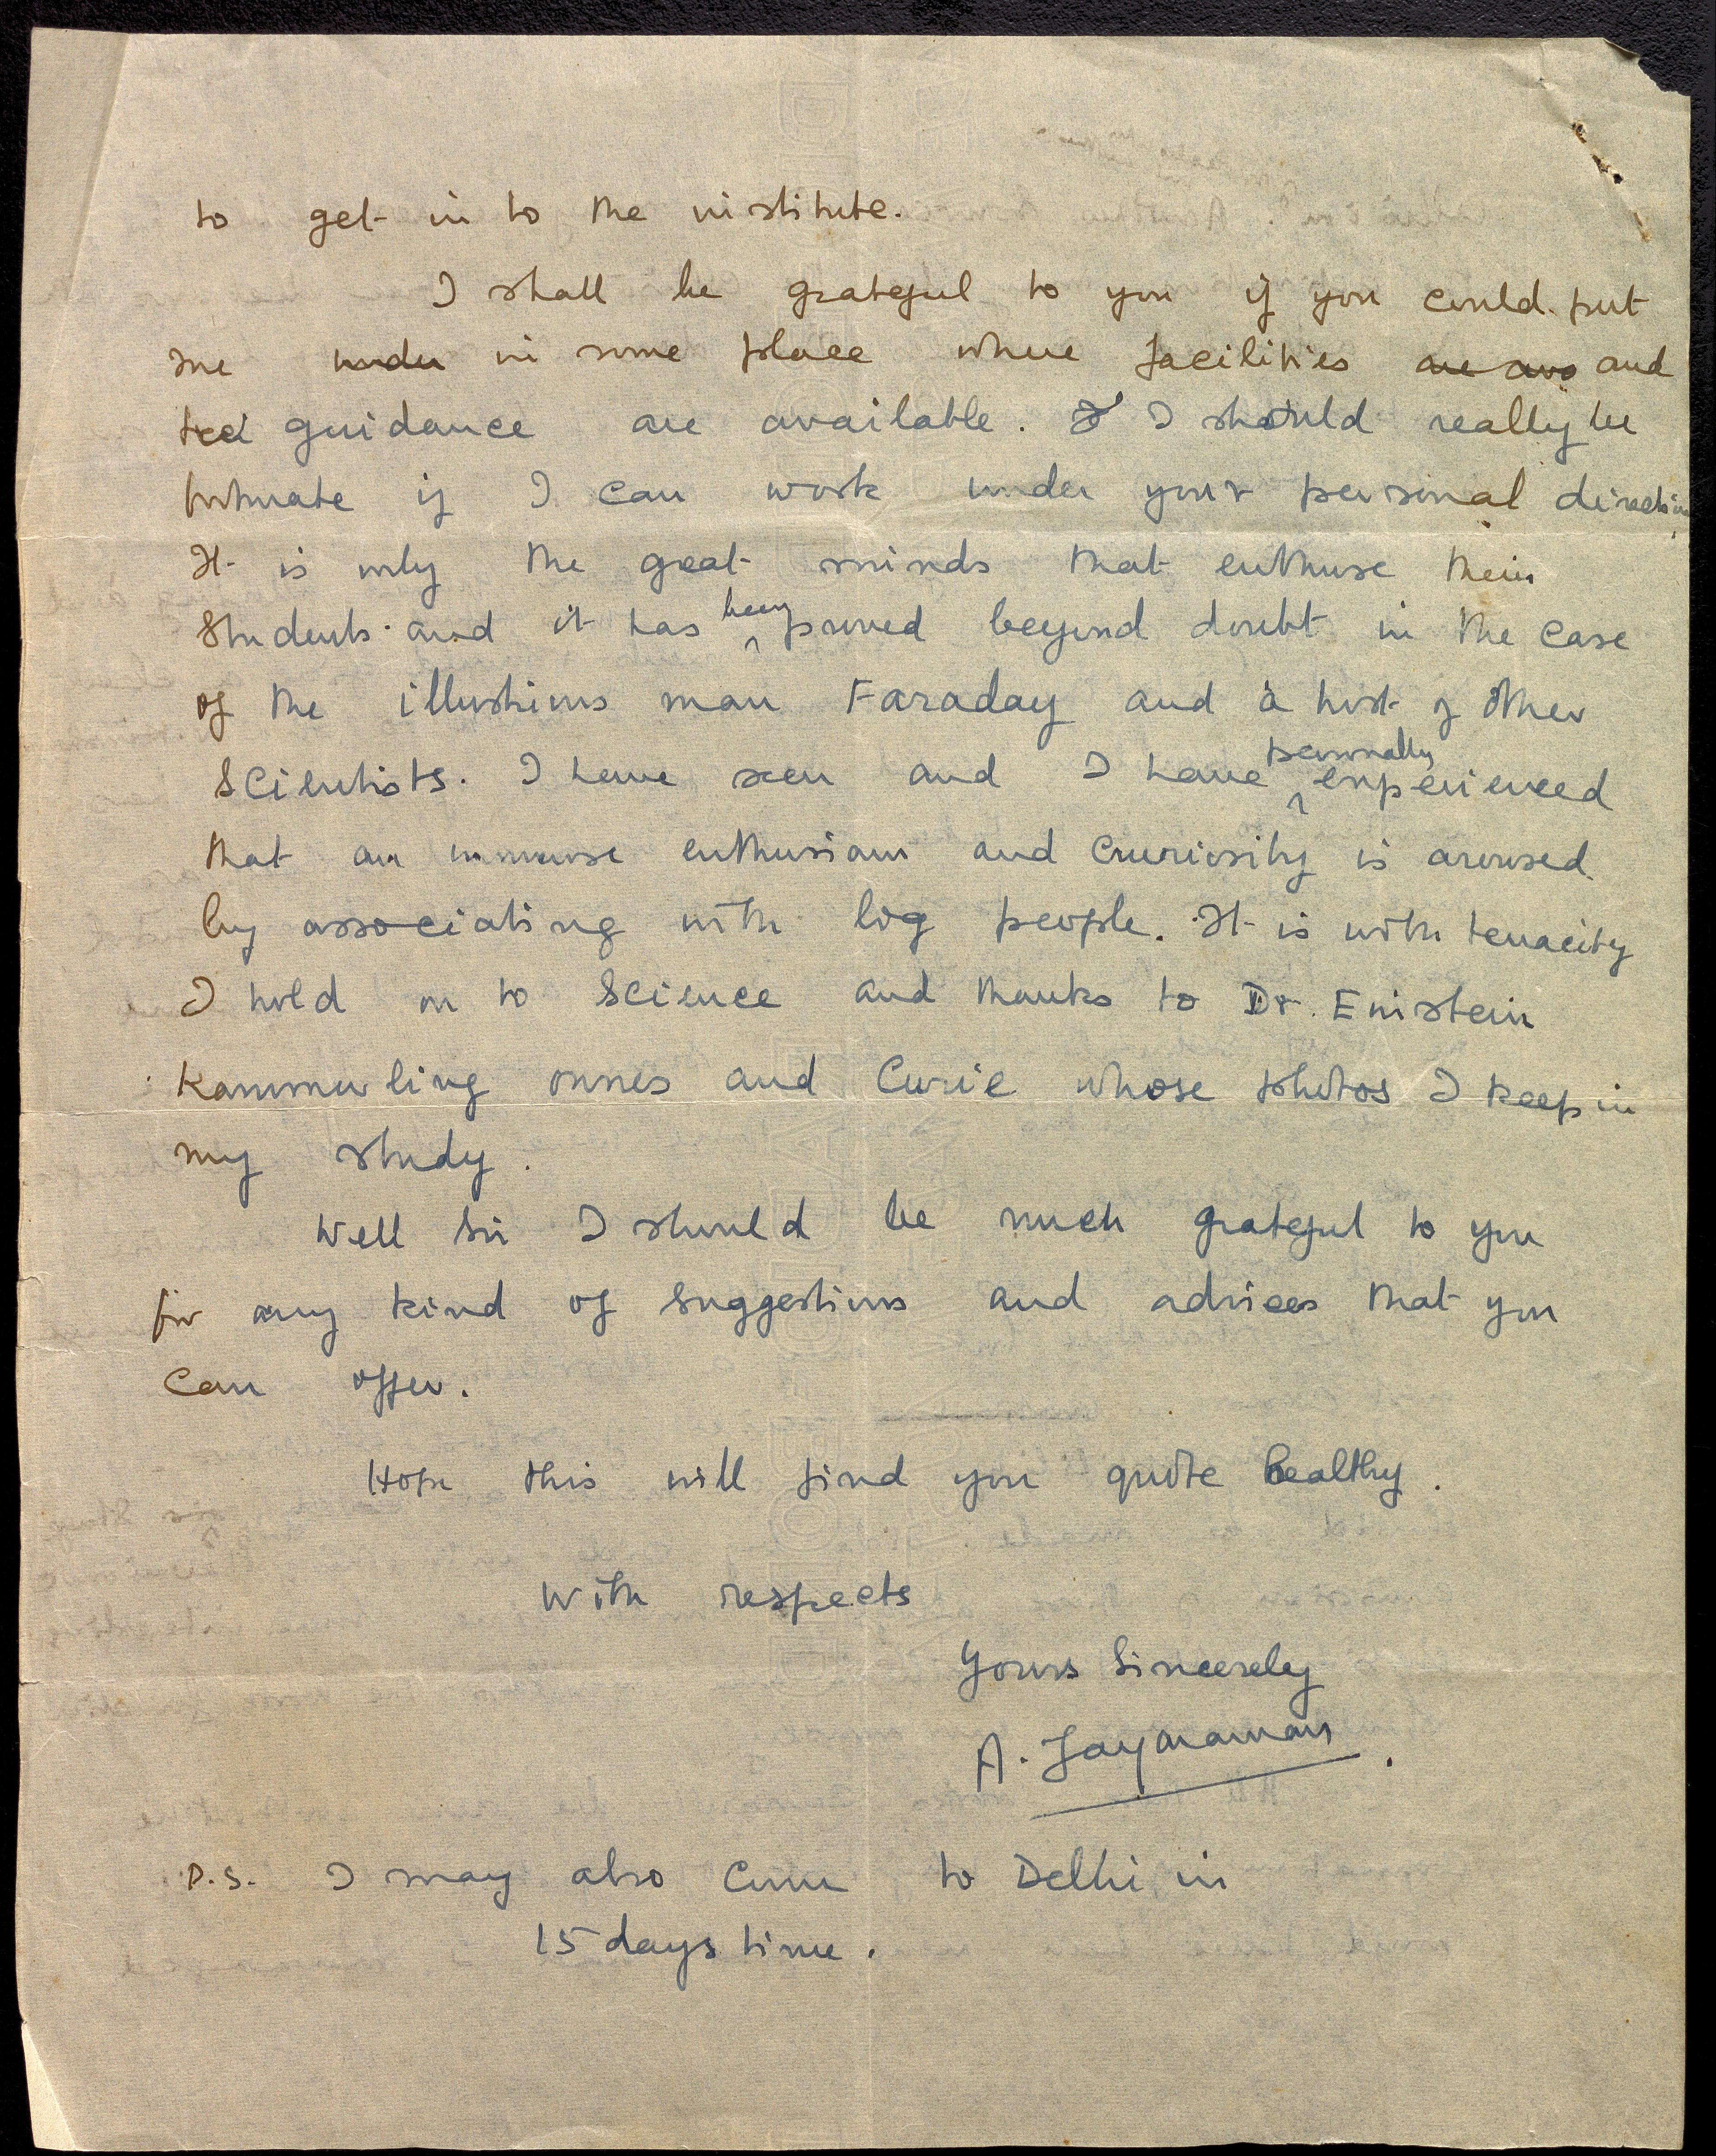 to get in to the institute.
I shall be grateful to you if you could put
me under in some place where facilities are ava and
ted guidance are available. I I should really be
fortunate if I can work under your personal direction
It is only the great minds that enthuse their
students and it has been proved beyond doubt in the case
of the illustrious man Faraday and a host of other
scientists. I have seen and I have personally experienced
that an immense enthusiasm and curiosity is aroused
by associating with big people. It is with tenacity
I hold on to science and thanks to Dr. Einstein
Kammerling onnes and Curie whose photos I keep in
my study.
Well Sir I should be much grateful to you
for any kind of suggestions and advices that you
can offer.
Hope this will find you quite healthy.
With respects
Yours Sincerely
A. Jayaraman.
P.S. I may also come to Delhi in
15 days time.